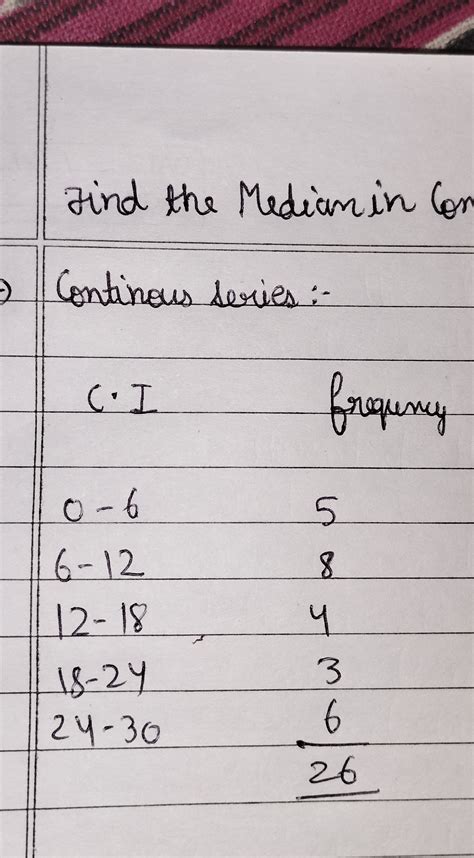 Find the Median in Con
Continous series :-
C.I frequncy
0-6 5
6-12 8
12-18 4
18-24 3
24-30 6
26